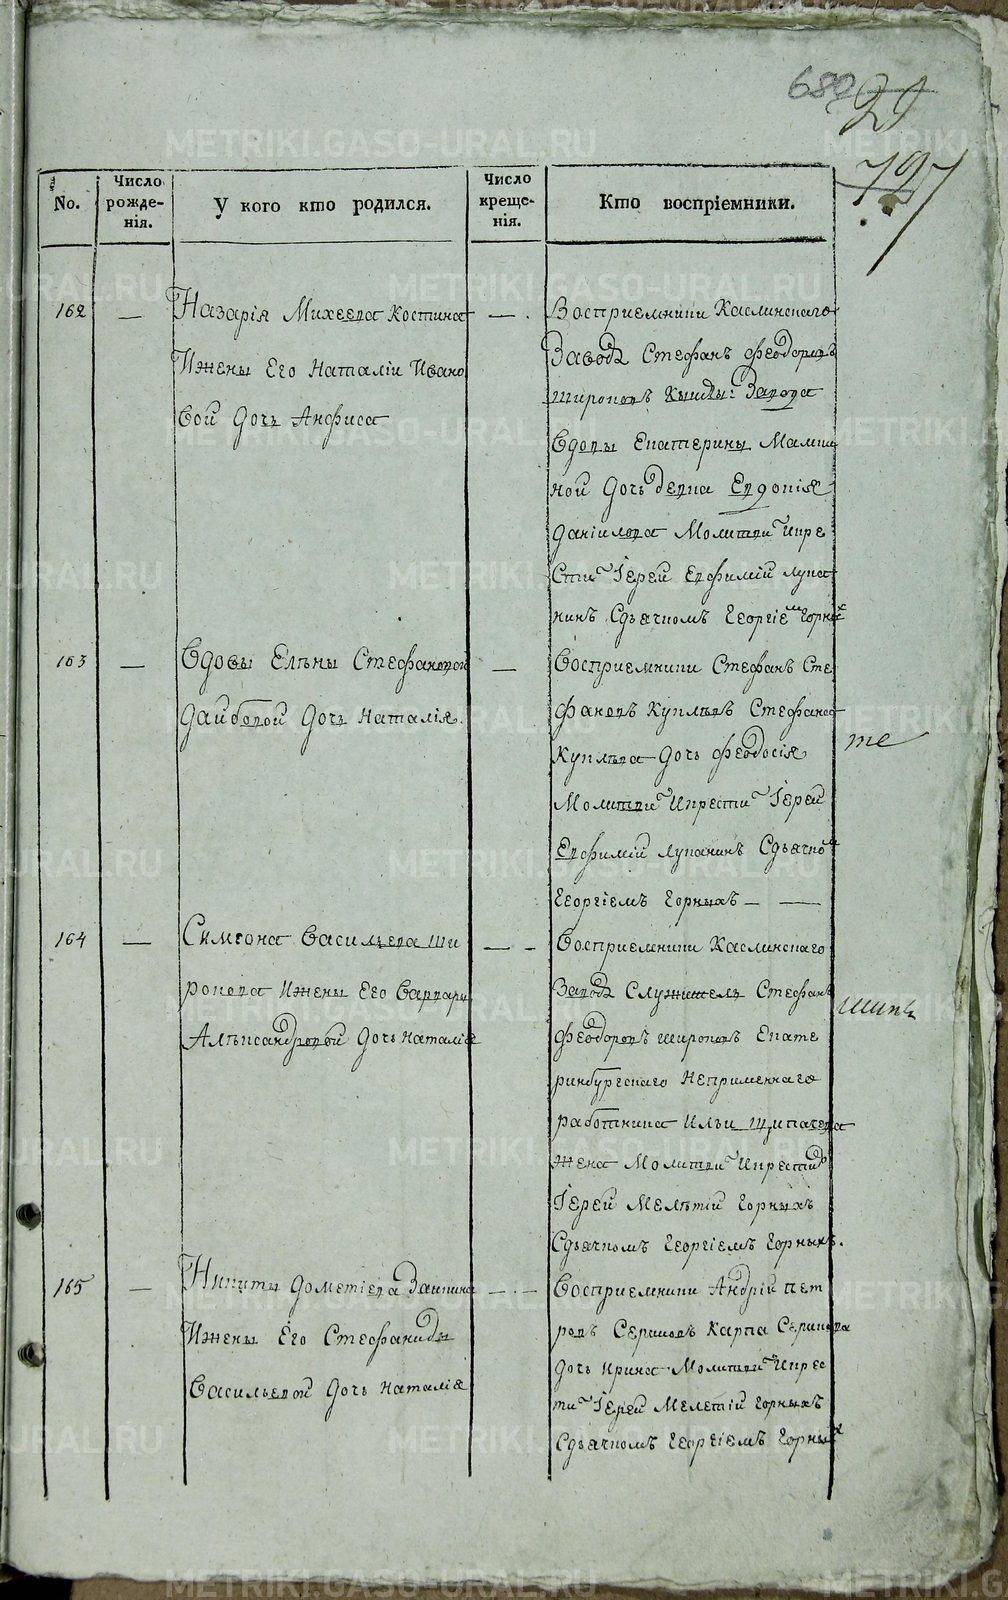 689 29
797
No.
Число рожде- нія.
У кого кто родился.
Число креще- нія.
Кто воспріемники.
162 — Назарія Михеева Костина — .
Ижены Его Наталіи Ивано
вой Дочь Анфиса
Восприемники Каслинскаго
Завода Стефанъ Феодоровъ
Широковъ Кышты: Завода
Вдовы Екатерины Мамки
ной Дочь девка Евдокія
Даніилова МолитвиИкре
сти Іерей Евфимій Лука
нинъ Сдьячкомъ Георгіем Горных
163 — Вдовы Елѣны Стефановой —
Дайбовой Дочь Наталія.
Восприемники Стефанъ Сте
фановъ Куплѣвъ Стефана
Куплѣва Дочь Феодосія
те
Молитви Икрести Іерей
Евфимій Луканинъ Сдьячко
Георгіемъ Горныхъ — —
164 — Симеона Васильева Ши — -
рокова Ижены Его Варвары
Алѣксандровой Дочь Наталія
Восприемники Каслинскаго
Завода Служитель Стефанъ
Феодоровъ Широковъ Екате
ринбургскаго Непременнаго
работника Ильи Щипачева
жена Молитви Икрести
Іерей Мелѣтій Горныхъ
Сдьячкомъ Георгіемъ Горныхъ.
165 — Никиты Дометіева Заикина — . —
Ижены Его Стефаниды
Васильевой Дочь Наталія
Восприемники Андрій Пет
ровъ Сериковъ Карпа Серикова
дочь Ирина Молитви Икрес
ти Іерей Мелетій Горныхъ
Сдьячкомъ Георгіемъ Горных
METRIKI.GASO-URAL.RU